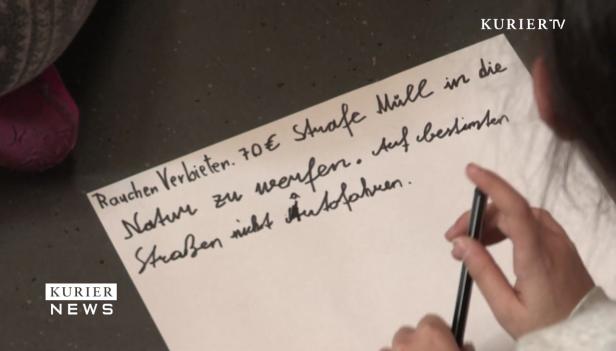 KURIER TV
Rauchen Verbieten. 70€ Strafe Müll in die
Natur zu werfen. Auf bestimten
Straßen nicht Autofahren.
KURIER
NEWS